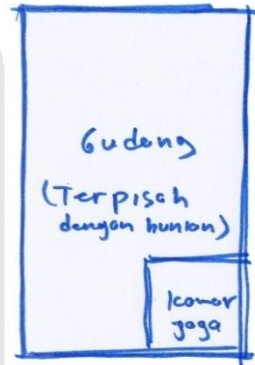 Gudang
(Terpisah
dengan hunian)
kamar
jaga